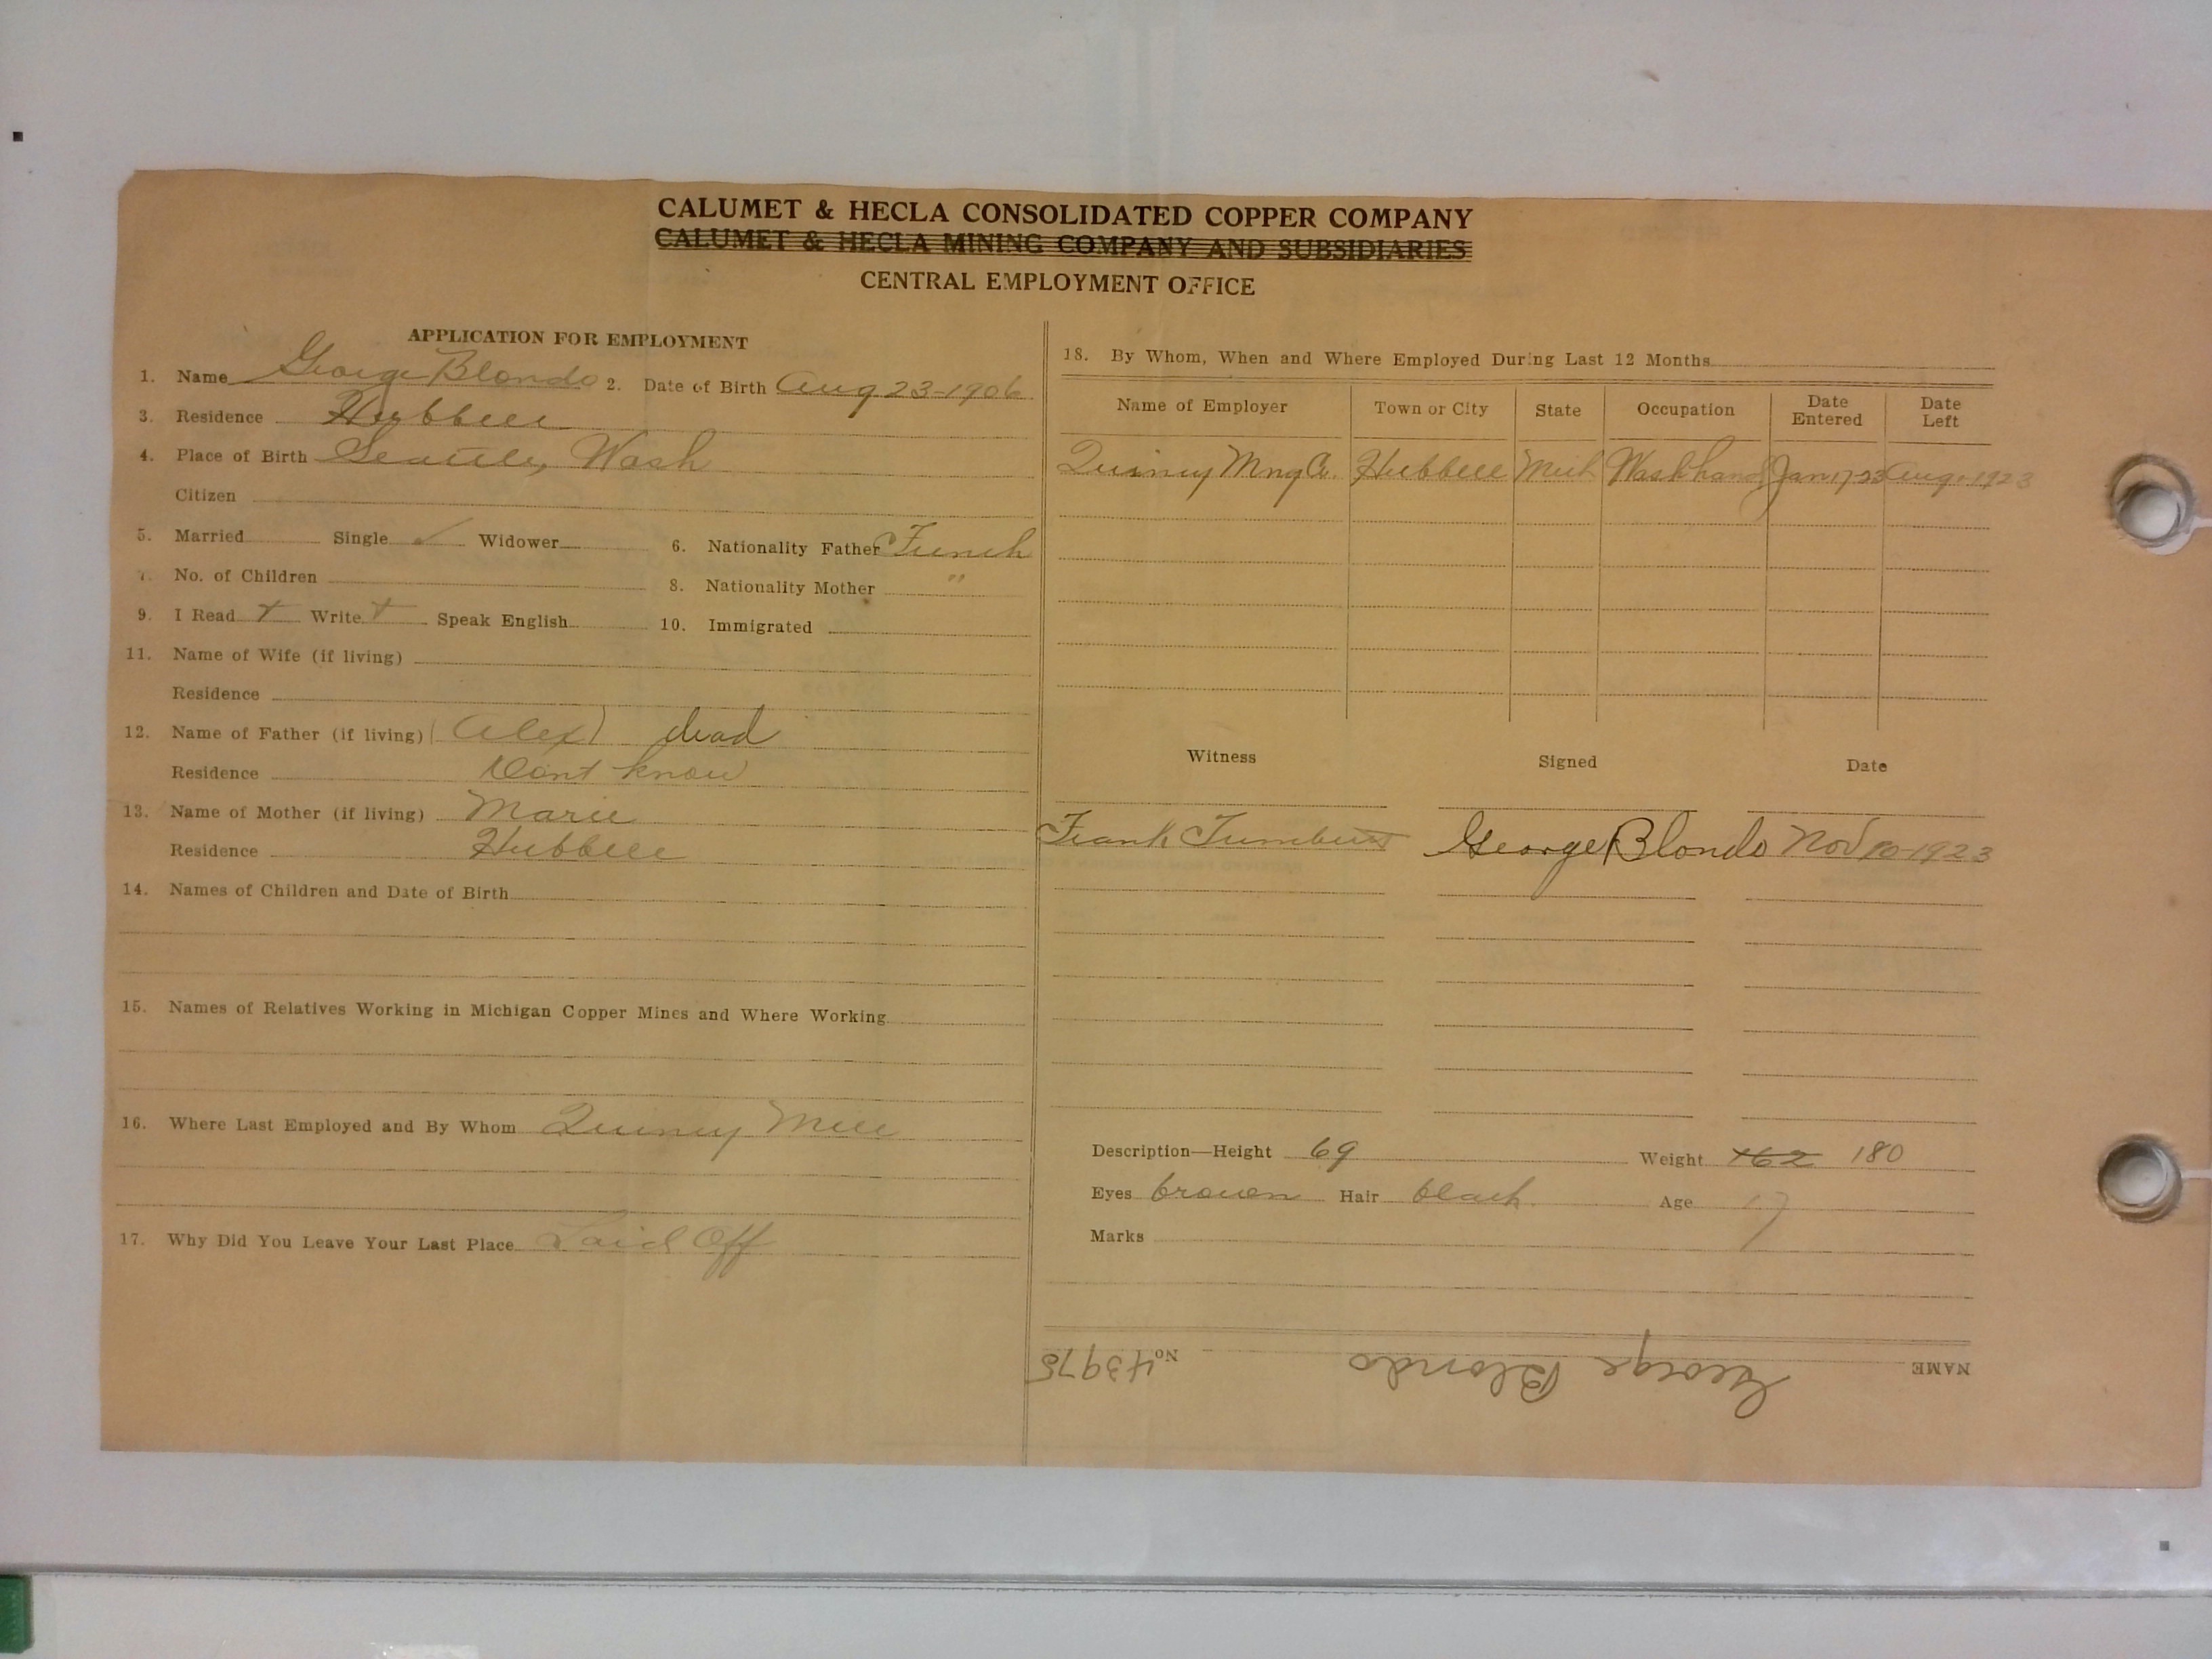 CALUMET & HECLA CONSOLIDATED COPPER COMPANY
CALUMET & HECLA MINING COMPANY AND SUBSIDIARIES
CENTRAL EMPLOYMENT OFFICE
APPLICATION FOR EMPLOYMENT
1. Name George Blondo 2. Date of Birth Aug 23-1906
3. Residence Hubbell
4. Place of Birth Seattle, Wash
Citizen
5. Married Single ✓ Widower 6. Nationality Father French
7. No. of Children 8. Nationality Mother "
9. I Read + Write + Speak English 10. Immigrated
11. Name of Wife (if living)
Residence
12. Name of Father (if living) (Alex) dead
Residence Dont know
13. Name of Mother (if living) Marie
Residence Hubbell
14. Names of Children and Date of Birth
15. Names of Relatives Working in Michigan Copper Mines and Where Working
16. Where Last Employed and By Whom Quincy Mill
17. Why Did You Leave Your Last Place Laid Off
18. By Whom, When and Where Employed During Last 12 Months
Name of Employer Town or City State Occupation Date Entered Date Left
Quincy Mng Co. Hubbell Mich Wash hand Jan 17-23 Aug.-1923
Witness Signed Date
Frank George Blondo Nov 10-1923
Description—Height 69 Weight 162 180
Eyes brown Hair black. Age 17
Marks
NAME George Blondo No. 43975